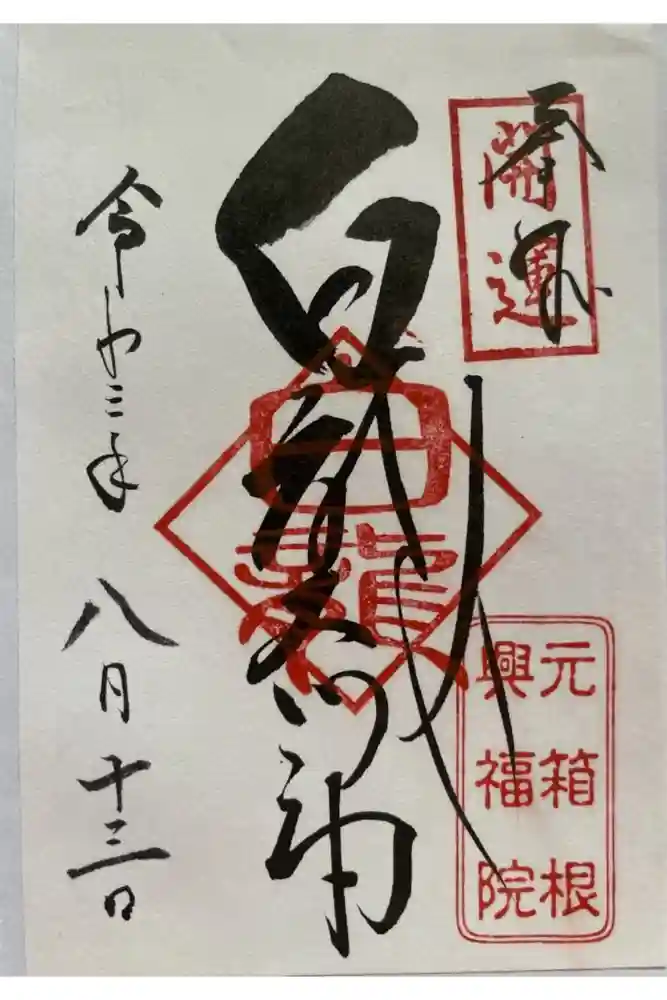 奉拝
開運
白龍大明神
白龍
元箱根
興福院
令和三年 八月十三日